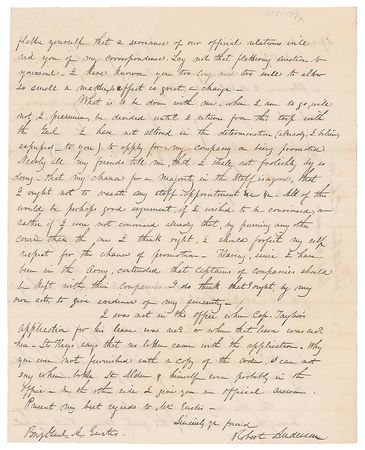 flatter yourself that a severance of our official relations will
rid you of my correspondence. Lay not that flattering unction to
your soul. I have known you too long and too well to allow
so small a matter to affect so great a change —
What is to be done with me — where I am to go, will
not, I presume, be decided until I return from this trip with
the Genl. I have not altered in the determination (already, I believe,
expressed to you) to apply for my company on being promoted
Nearly all my friends tell me that I shall act foolishly by so
doing — that my chance for a Majority in the Staff is good, that
I ought not to vacate my staff-appointment &c &c — All of this
would be perhaps good argument, if I wished to be convinced, or
rather if I were not convinced already that, by pursuing any other
course than the one I think right, I should forfeit my self
respect for the chance of promotion — Having, since I have
been in the Army, contended that Captains of companies should
be kept with their companies I do think that I ought by my
own acts to give evidence of my sincerity —
I was not in the office when Cap. Taylor's
application for his leave was recd. or when that leave was
— Thomas says that no letter came with the application. Why
you were not furnished with a copy of the order I can not
say when both Lt. & himself were probably in the
office — On the other side I give you an official answer.
Present my best regards to Mrs Eustis —
Sincerely yr friend
Robert Anderson
Brig Genl A. Eustis.